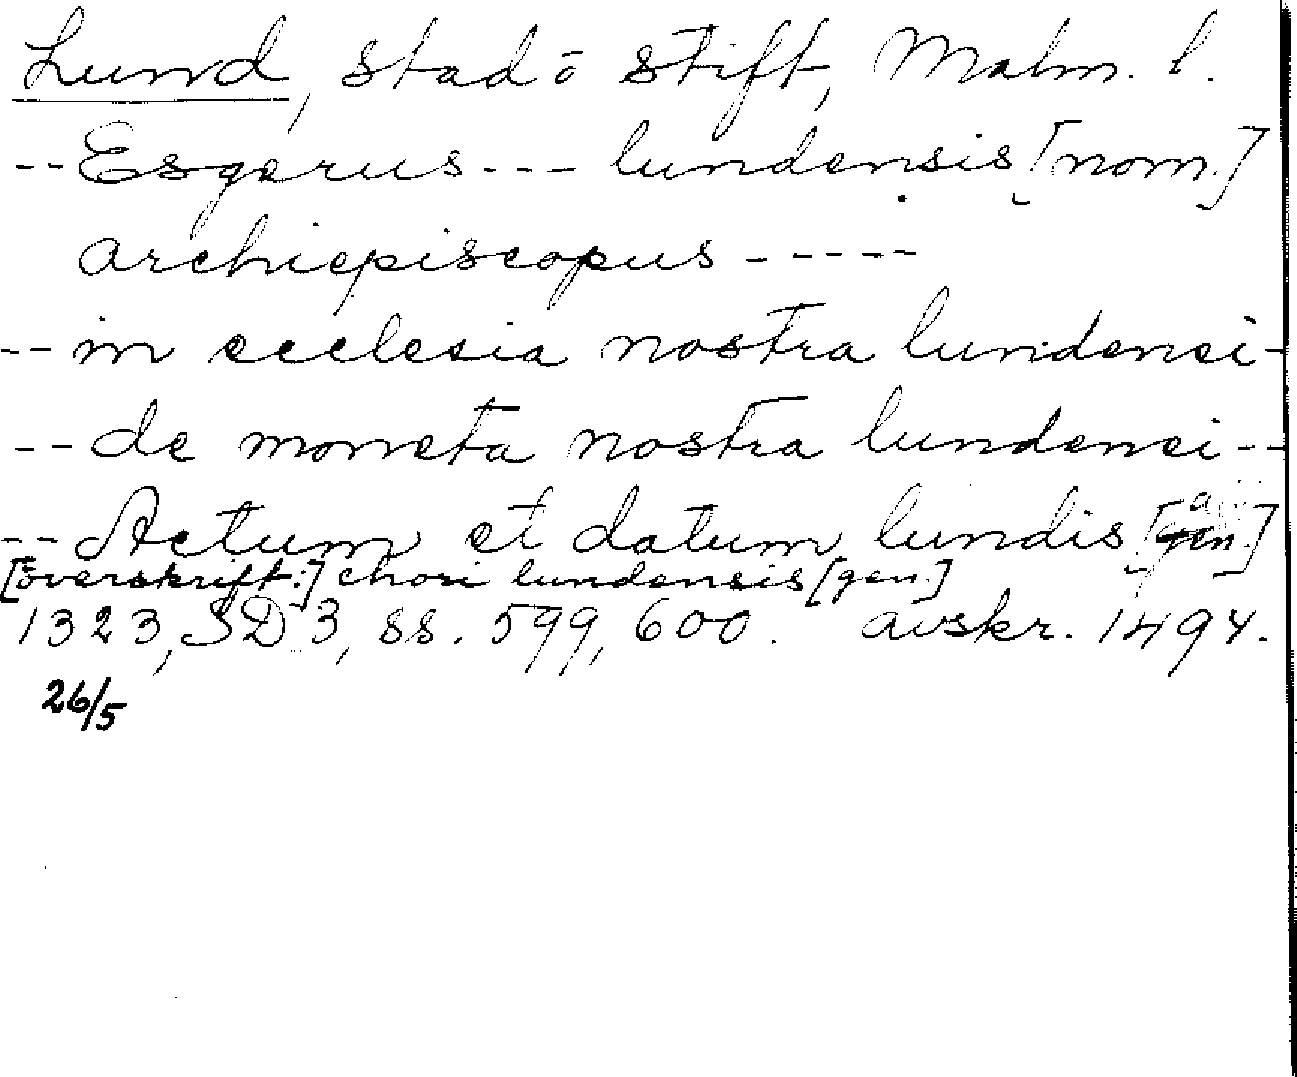 Lund, stad o stift, Malm. l.
-- Esgerus --- lundensis [nom.]
archiepiscopus -----
-- in ecclesia nostra lundensi -
-- de moneta nostra lundensi --
-- Actum et datum lundis [gen.]
[överskrift:] chori lundensis [gen.]
1323, SD 3, ss. 599, 600. avskr. 1494.
26/5